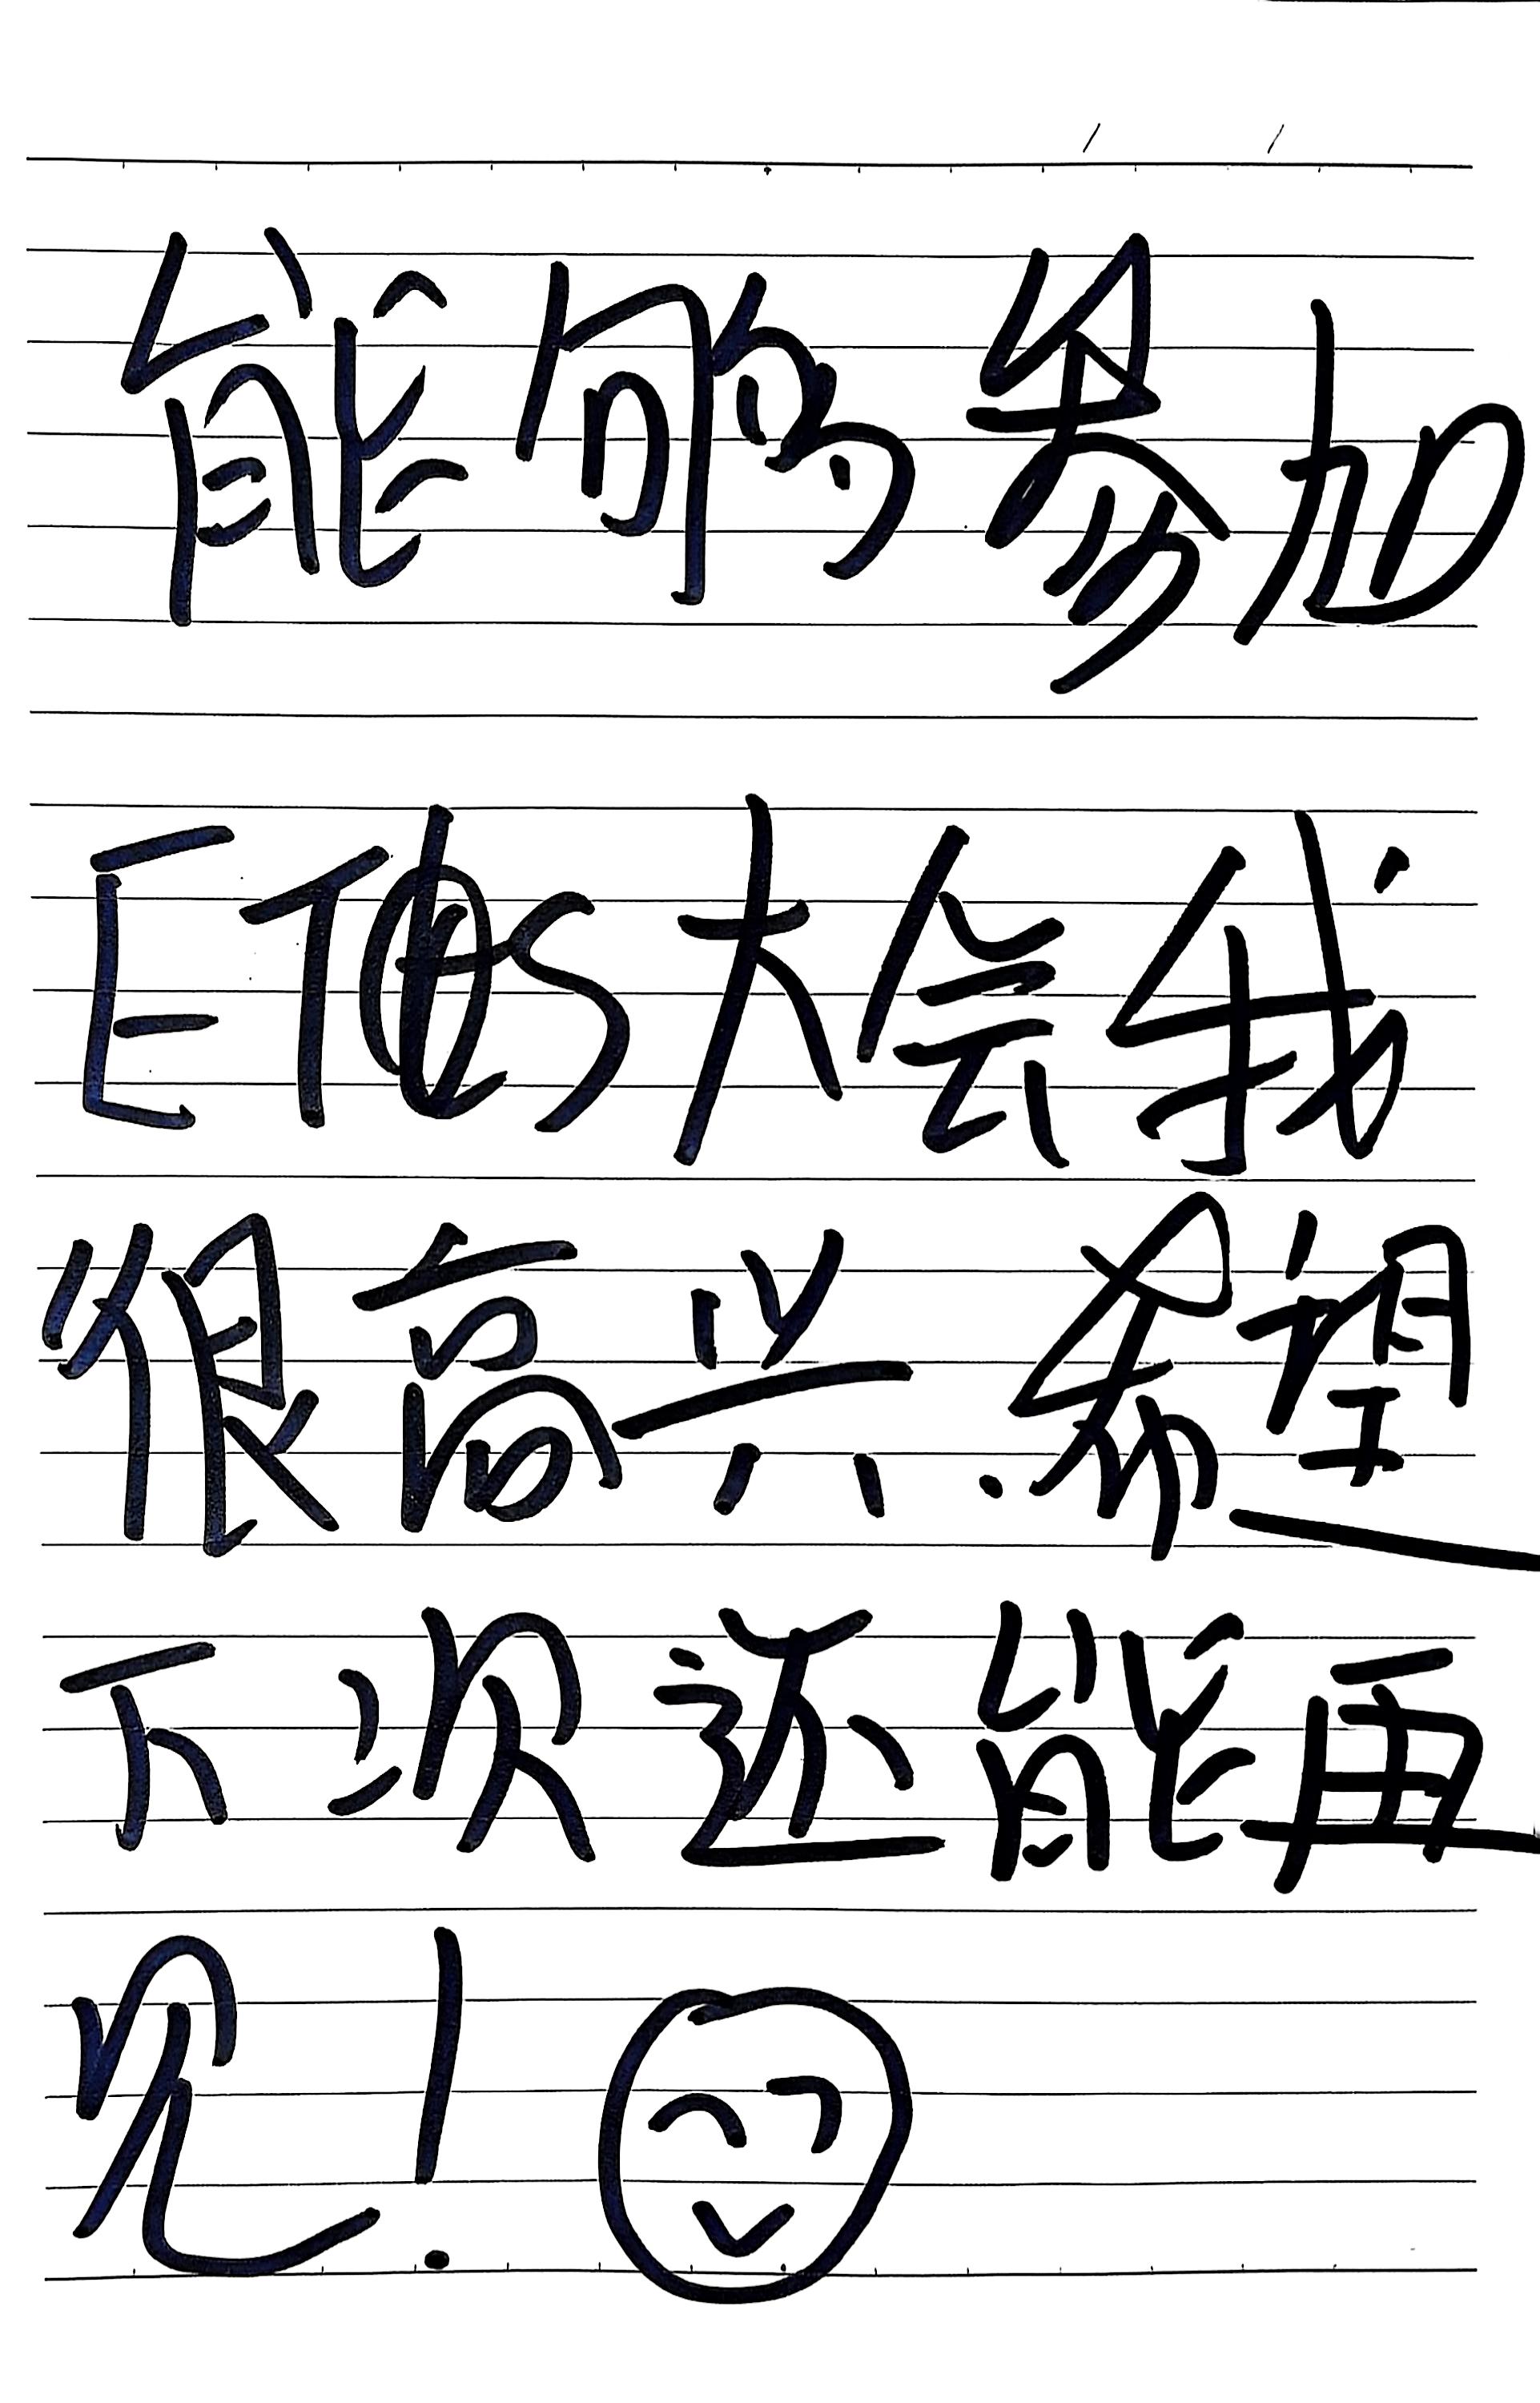 能够参加
大会我
很高兴.希望
下次还能再
见!